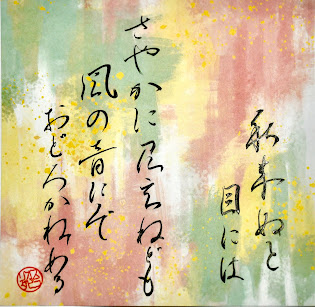 秋来ぬと
目には
さやかに見えねども
風の音にぞ
おどろかれぬる